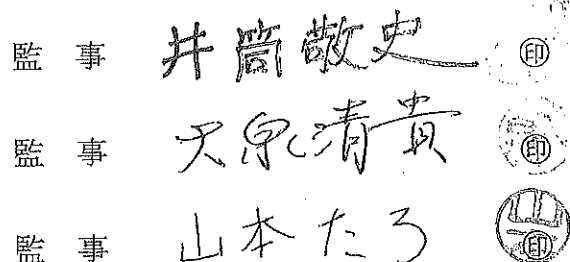 監事 井筒敬史 ㊞
監事 天泉清貴 ㊞
監事 山本たろ ㊞